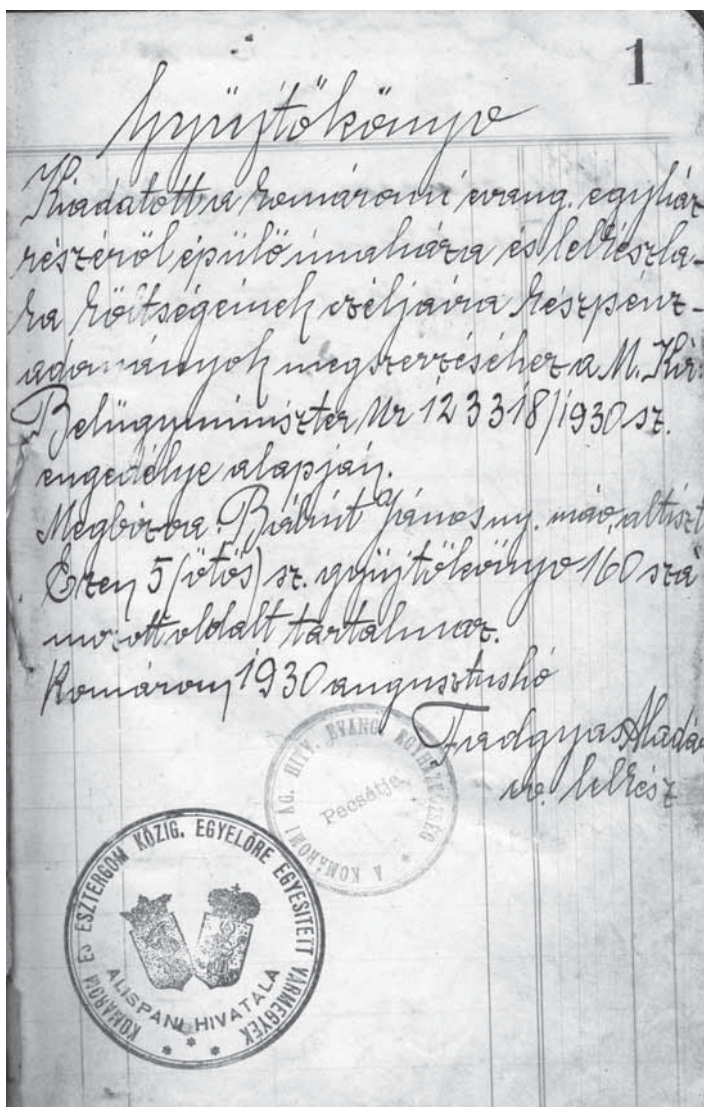 1
Gyüjtőkönyv
Kiadatott a komáromi evang. egyház
részéről épülő imaháza és lelkészla-
ka költségeinek czéljaira készpénz-
adományok megszerzéséhez a M. Kir.
Belügyminiszter Ur 123318/1930 sz.
engedélye alapján.
Megbizva: Bálint János ny. máv. altiszt
Ezen 5 (ötös) sz. gyüjtőkönyv 160 szá
mozott oldalt tartalmaz.
Komárom, 1930 augusztushó
Fadgyas Aladár
ev. lelkész
A KOMÁROMI ÁG. HITV. EVANG. EGYHÁZKÖZSÉG *
Pecsétje.
KOMÁROM ÉS ESZTERGOM KÖZIG. EGYELŐRE EGYESITETT VÁRMEGYÉK
ALISPÁNI HIVATALA
* * *